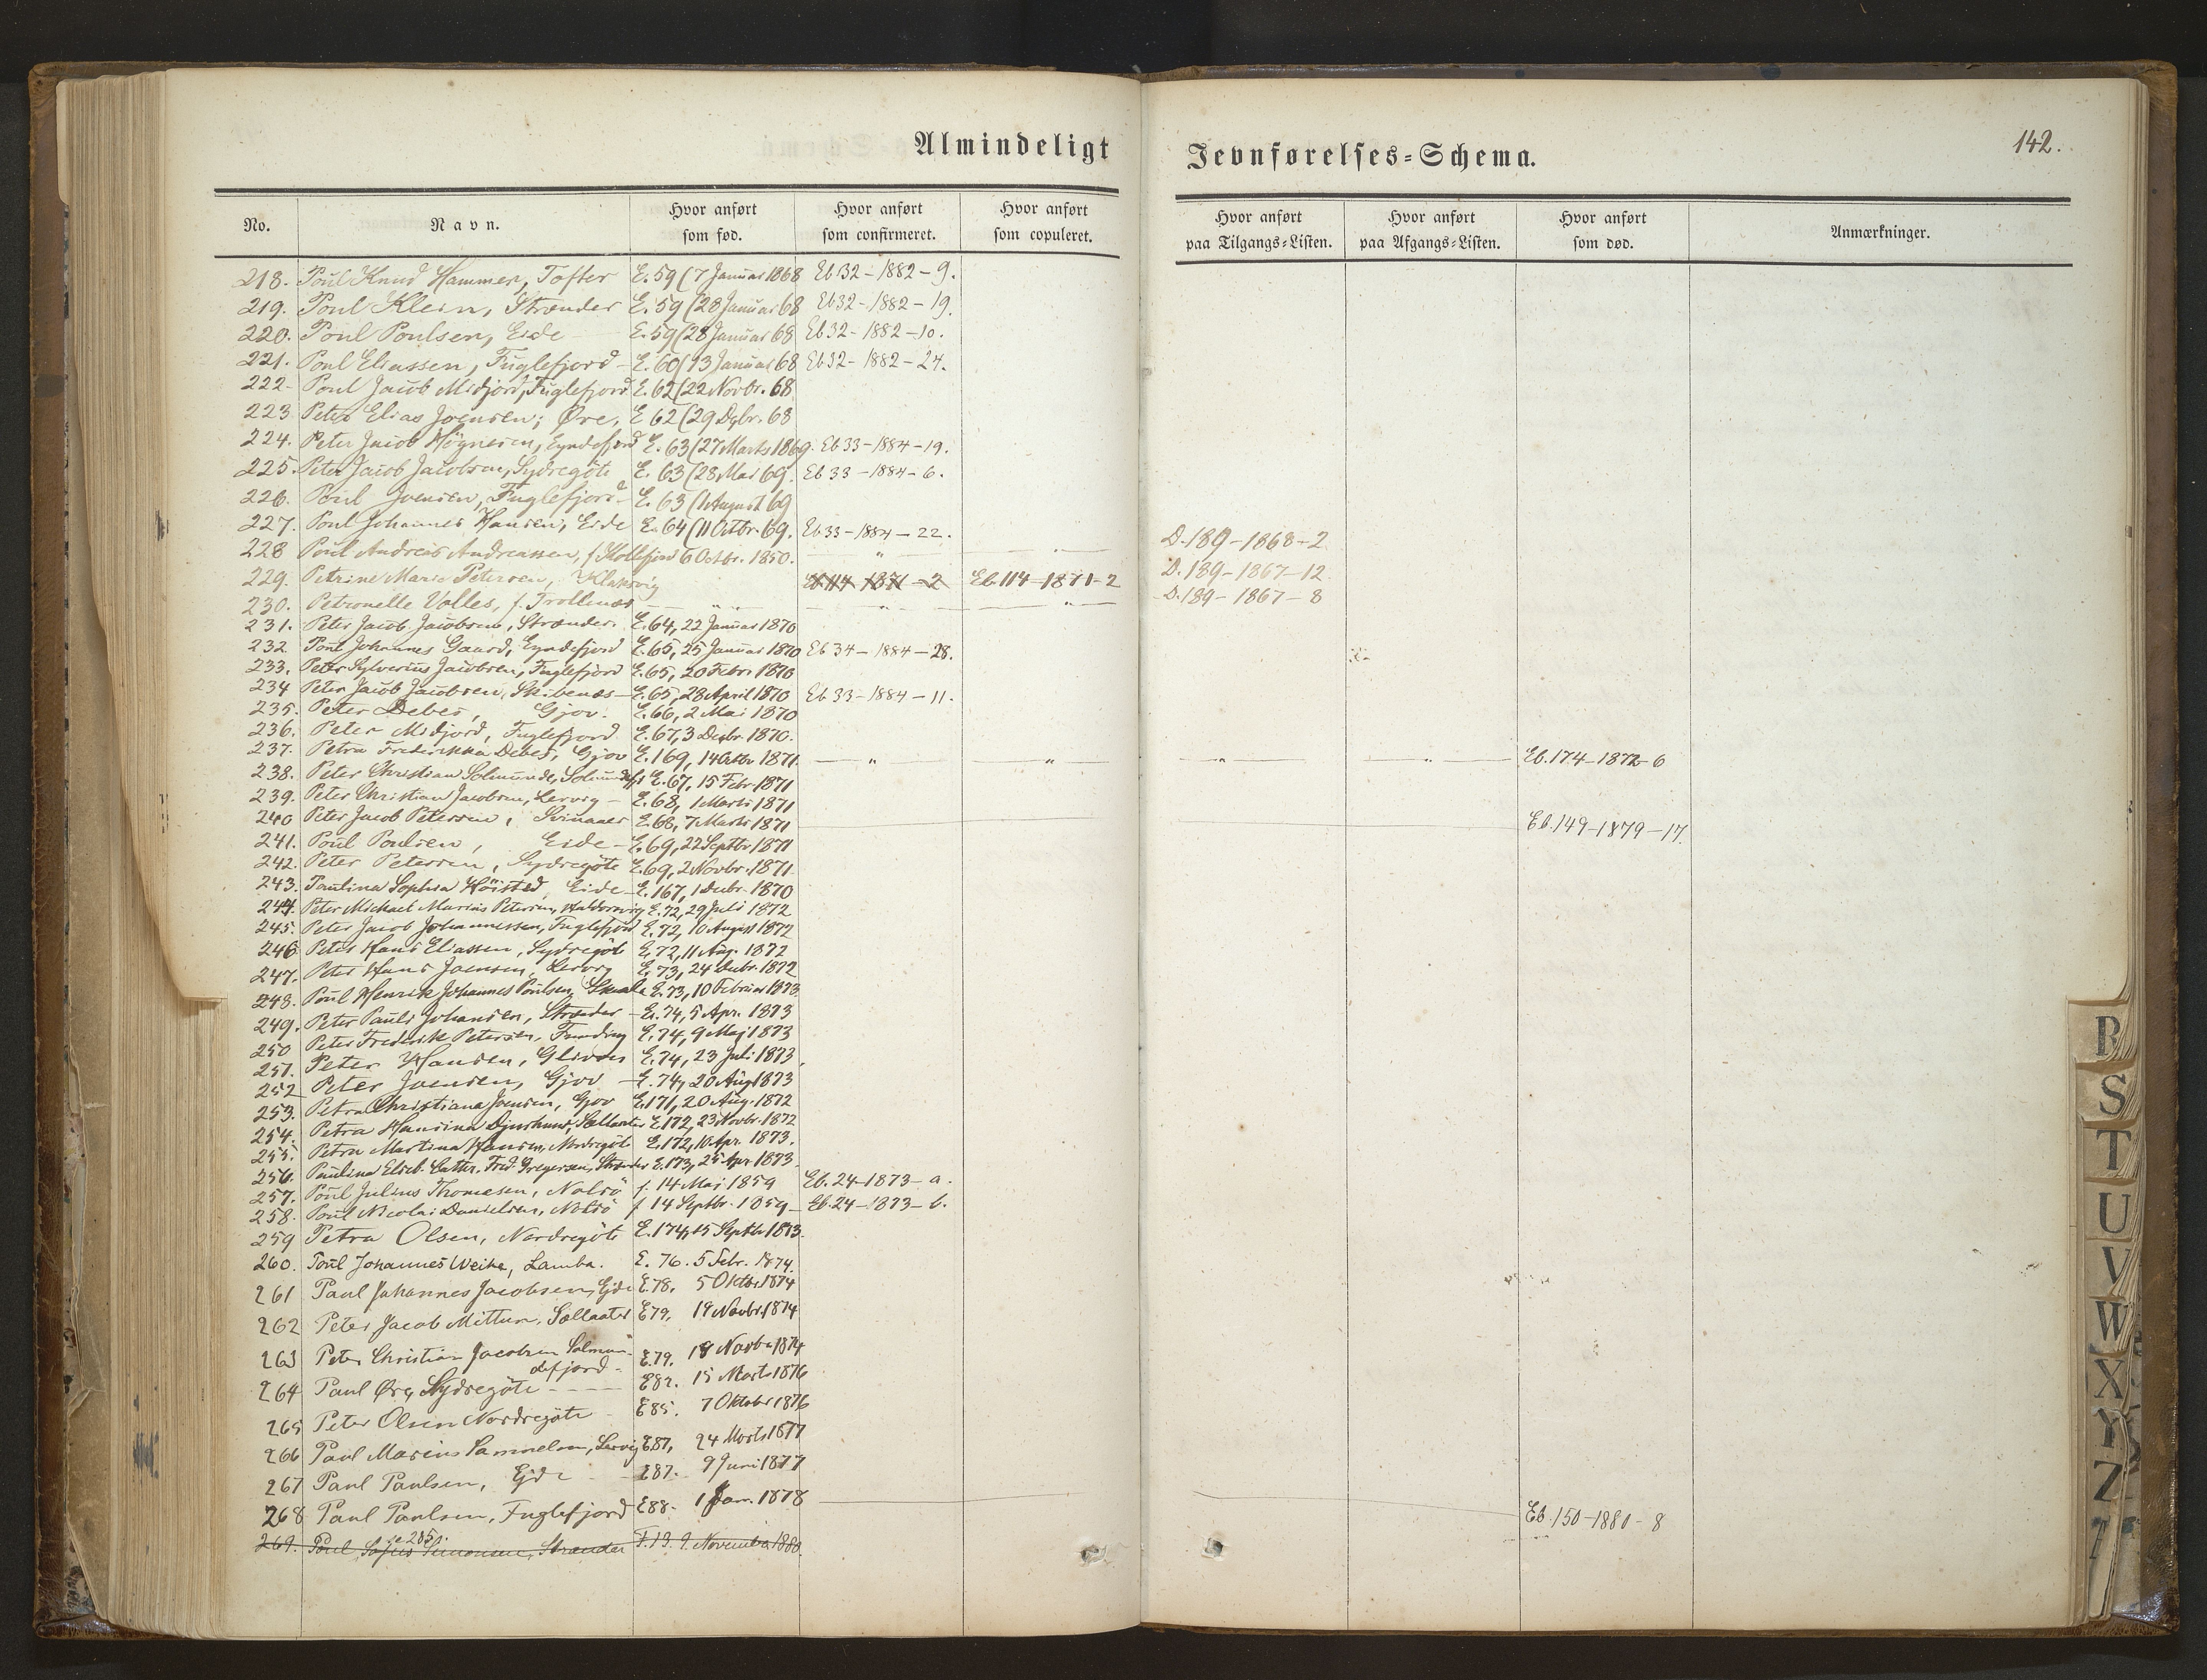 Almindeligt Jevnførelses=Schema. 142.
No. Navn. Hvor anført som fød. Hvor anført som confirmeret. Hvor anført som copuleret. Hvor anført paa Tilgangs=Listen. Hvor anført paa Afgangs=Listen. Hvor anført som død. Anmærkninger.
218. Poul Knud Hammer, Tofter E. 59 (7 Januar 1868 Eb 32 - 1882 - 9.
219. Poul Klein, Strænder E. 59 (28 Januar 68 Eb 32 - 1882 - 19.
220. Poul Poulsen, Eide E. 59 (28 Januar 68 Eb 32 - 1882 - 10.
221. Poul Eliassen, Fuglefjord - E. 60 (13 Januar 68 Eb 32 - 1882 - 24.
222. Poul Jacob Midjord, Fuglefjord E. 62 (22 Novbr. 68
223. Peter Elias Joensen; Øre, E 62 (29 Dcbr. 68
224. Peter Jacob Høgnesen, Eyndefjord E. 63 (27 Marts 1869. Eb 33 - 1884 - 19.
225. Peter Jacob Jacobsen, Sydregöte E. 63 (28 Mai 69. Eb 33 - 1884 - 6.
226. Poul Joensen, Fuglefjord - E. 63 (1 August 69
227. Poul Johannes Hansen, Eide E. 64 (11 Octbr. 69. Eb 33 - 1884 - 22.
228 Poul Andreas Andreassen, f. Kollefjord 6 Octbr. 1850. — " — — " — D. 189 - 1868 - 2
229. Petrine Marie Petersen, Klaksvig Eb 114 - 1871 - 2 Eb. 114 - 1871 - 2 D. 189 - 1867 - 12.
230. Petronelle Volles, f. Trollenæs — " — — " — — " — D. 189 - 1867 - 8
231. Peter Jacob Jacobsen, Strænder. E. 64, 22 Januar 1870
232. Poul Johannes Gaard, Eyndefjord E. 65, 25 Januar 1870 Eb 34 - 1884 - 28.
233. Peter Sylverius Jacobsen, Fuglefjord E. 65, 20 Febr. 1870
234 Peter Jacob Jacobsen, Skibenæs - E. 65, 28 April 1870 Eb 33 - 1884 - 11.
235. Peter Debes, Gjov. E. 66, 2 Mai 1870
236. Peter Midjord, Fuglefjord E. 67, 3 Decbr. 1870.
237. Petra Frederikka Debes, Gjov E. 169, 14 Octbr 1871. — " — — " — — " — — " — Eb. 174 - 1872 - 6
238. Peter Christian Solmunde, E. 67, 15 Febr 1871
239. Peter Christian Jacobsen, Lervig - E. 68, 1 Marts 1871
240 Peter Jacob Petersen, Svinaaer E. 68, 7 Marts 1871 Eb. 149 - 1879 - 17.
241. Poul Poulsen, Eide - E. 69, 22 Septbr 1871
242. Peter Petersen, Sydregöte E. 69, 2 Novbr. 1871.
243. Paulina Sophia Höisted, Eide - E. 167, 1 Decbr. 1870
244. Peter Michael Marius Petersen, Haldorsvig E. 72, 29 Juli 1872
245. Peter Jacob Johannessen, Fuglefjord E. 72, 10 August 1872
246 Peter Hans Eliassen, Sydregöt E. 72, 11 Aug. 1872
247. Peter Hans Joensen, Lervig E. 73, 24 Decbr. 1872
248. Poul Henrik Johannes Poulsen, Skaale E. 73, 10 Februar 1873
249. Peter Pauli Johansen, Strænder - E. 74, 5 Apr. 1873
250 Peter Frederik Petersen, Funding E. 74, 9 Mai 1873
251. Peter Hansen, Glivræs E. 74, 23 Juli 1873
252 Peter Joensen, Gjov - E. 74, 20 Aug 1873
253. Petra Christiana Joensen, Gjov E. 171, 20 Aug. 1872
254. Petra Hansina Djurhuus, Sellaater E. 172, 23 Novbr. 1872
255. Petra Martina Hansen, Nordregöte E. 172, 10 Apr. 1873.
256. Paulina Elisb. Cathr. Fred. Gregersen, Strænder E. 173, 25 Apr 1873
257. Poul Julius Thomasen, Nolsö f. 14 Mai 1859 Eb. 24 - 1873 - a.
258. Poul Nicolai Danielsen, Nolsö f 14 Septbr. 1859 - Eb. 24 - 1873 - b.
259 Petra Olsen, Nordregöte E. 174, 15 Septbr 1873.
260. Poul Johannes Weihe, Lamba. E. 76. 5 Febr. 1874.
261 Paul Johannes Jacobsen, Ejde E 78. 5 Oktbr 1874
262 Peter Jacob Mittun, Sellaater E 79. 19 Novbr. 1874
263 Peter Christian Jacobsen Solmun- E. 79. 18 Novbr 1874
defjord -
264 Paul Øre, Sydregöte - - - E 82. 15 Marts 1876
265 Peter Olsen Nordregöte E 85. 7 Oktober 1876
266 Paul Marius Samuelsen, Lervig E 87, 24 Marts 1877
267 Paul Paulsen, Ejde - E 87. 9 Juni 1877
268 Paul Paulsen, Fuglefjord E 88. 1 Jan. 1878 Eb. 150 - 1880 - 8
se 285.
269. Poul Sofus Simonsen, Strænder F. 13. 9. November 1880.
R
S
T
U
V
W
X
Y
Z